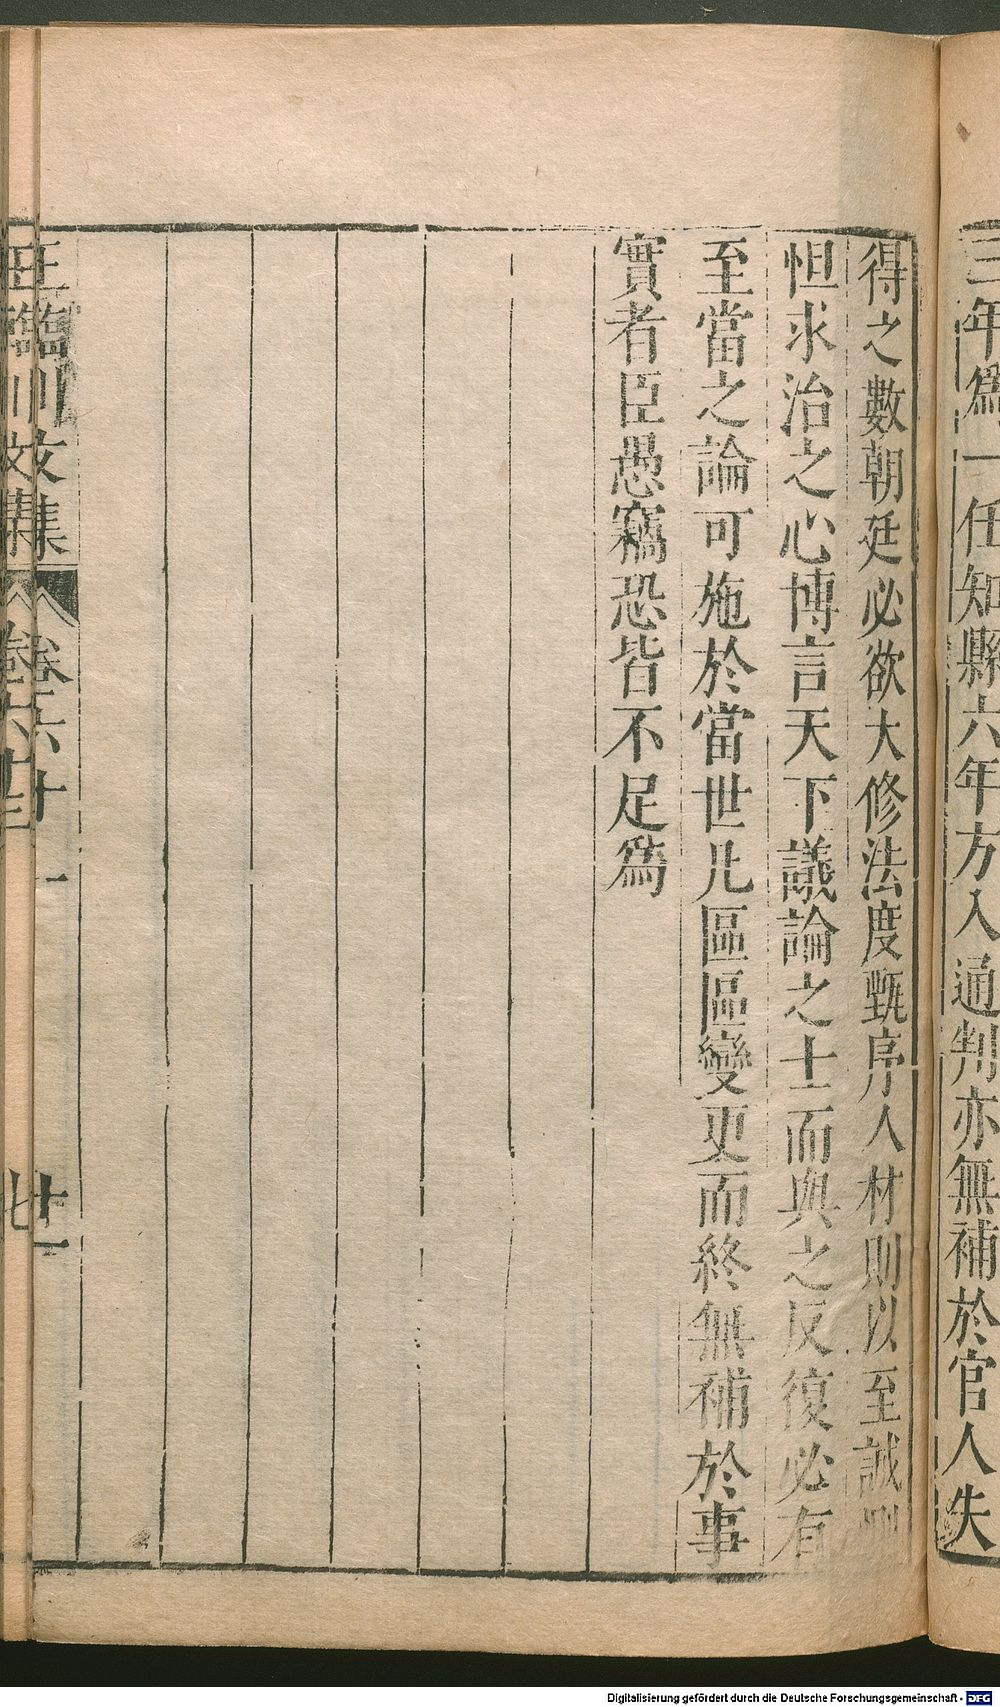 三年爲一任知縣六年方入通判亦無補於官人失
得之數朝廷必欲大修法度甄序人材則以至誠惻
怛求治之心博言天下議論之士而與之反復必有
至當之論可施於當世凡區區變更而終無補於事
實者臣愚竊恐皆不足爲
王臨川文集 卷六十二 廿一
Digitalisierung gefördert durch die Deutsche Forschungsgemeinschaft - DFG